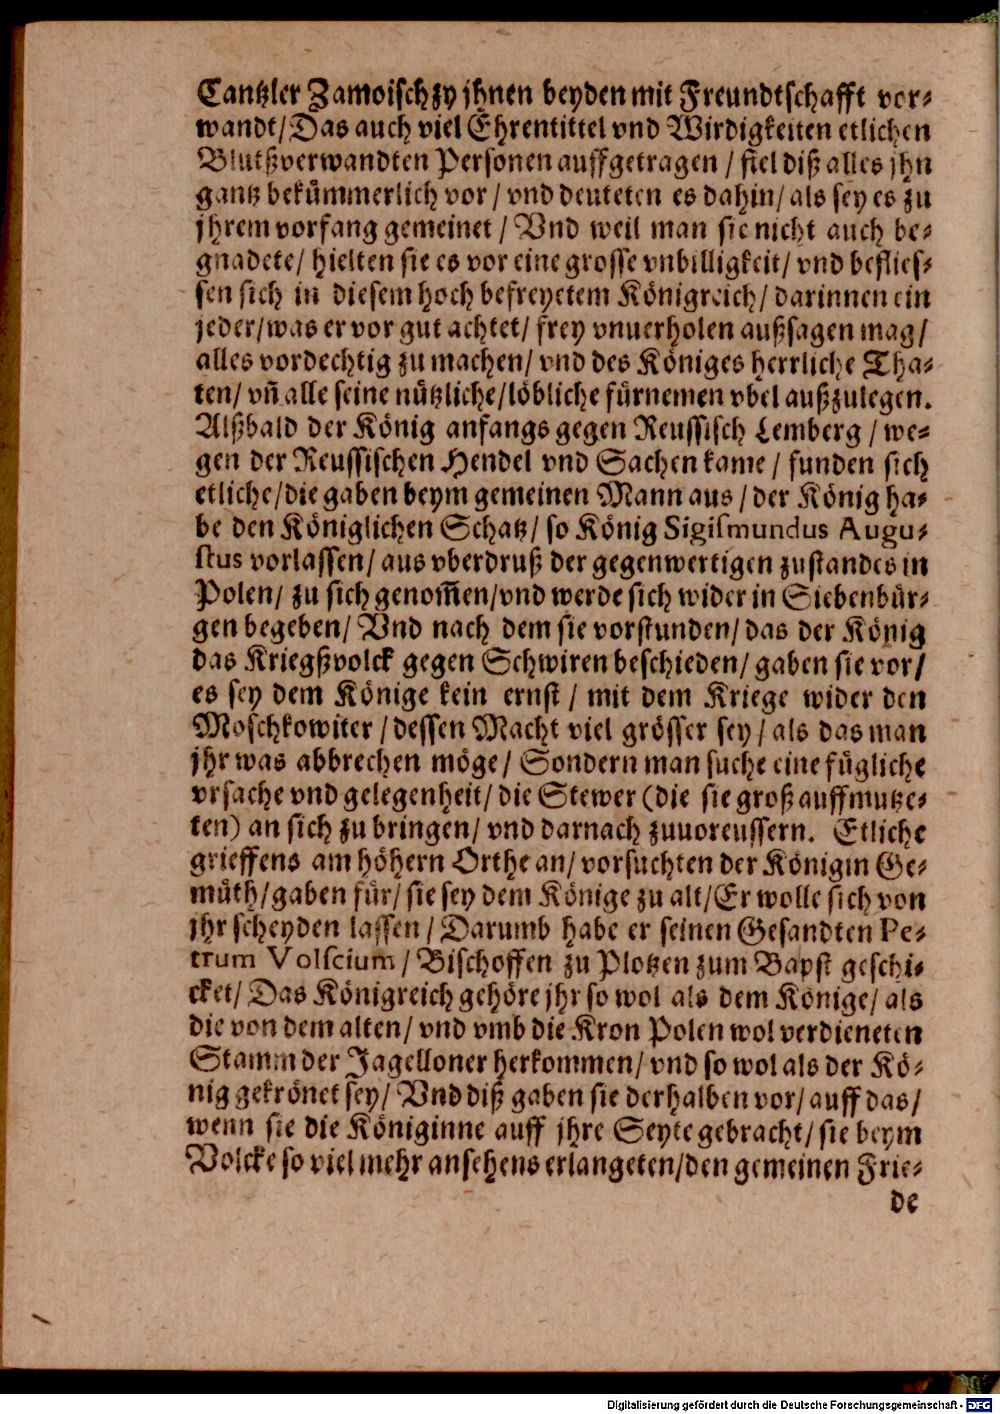 Cantzler Zamoischzy jhnen beyden mit Freundtschafft vor-
wandt/ Das auch viel Ehrentittel vnd Wirdigkeiten etlichen
Blutßverwandten Personen auffgetragen / fiel diß alles jhn
gantz bekümmerlich vor / vnd deuteten es dahin/ als sey es zu
jhrem vorfang gemeinet / Vnd weil man sie nicht auch be-
gnadete/ hielten sie es vor eine grosse vnbilligkeit/ vnd beflies-
sen sich in diesem hoch befreyetem Königreich/ darinnen ein
jeder/ was er vor gut achtet/ frey vnuerholen außsagen mag/
alles vordechtig zu machen/ vnd des Königes herrliche Tha-
ten/ vñ alle seine nützliche/ löbliche fürnemen vbel außzulegen.
Alßbald der König anfangs gegen Reussisch Lemberg / we-
gen der Reussischen Hendel vnd Sachen kame / funden sich
etliche/ die gaben beym gemeinen Mann aus / der König ha-
be den Königlichen Schatz/ so König Sigismundus Augu-
stus vorlassen/ aus vberdruß der gegenwertigen zustandes in
Polen/ zu sich genom̃en/ vnd werde sich wider in Siebenbür-
gen begeben/ Vnd nach dem sie vorstunden/ das der König
das Kriegßvolck gegen Schwiren beschieden/ gaben sie vor/
es sey dem Könige kein ernst / mit dem Kriege wider den
Moschkowiter / dessen Macht viel grösser sey / als das man
jhr was abbrechen möge/ Sondern man suche eine fügliche
vrsache vnd gelegenheit/ die Stewer (die sie groß auffmutze-
ten) an sich zu bringen/ vnd darnach zuuoreussern. Etliche
grieffens am höhern Orthe an/ vorsuchten der Königin Ge-
müth/ gaben für/ sie sey dem Könige zu alt/ Er wolle sich von
jhr scheyden lassen / Darumb habe er seinen Gesandten Pe-
trum Volscium / Bischoffen zu Plotzen zum Bapst geschi-
cket/ Das Königreich gehöre jhr so wol als dem Könige/ als
die von dem alten/ vnd vmb die Kron Polen wol verdieneten
Stamm der Jagelloner herkommen/ vnd so wol als der Kö-
nig gekrönet sey/ Vnd diß gaben sie derhalben vor/ auff das/
wenn sie die Königinne auff jhre Seyte gebracht/ sie beym
Volcke so viel mehr ansehens erlangeten/ den gemeinen Frie-
de
Digitalisierung gefördert durch die Deutsche Forschungsgemeinschaft - DFG